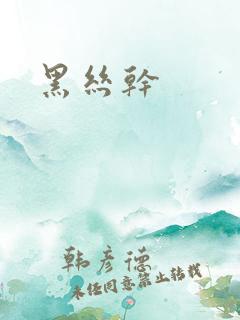 黑丝幹
韩彦德
未经同意禁止转载